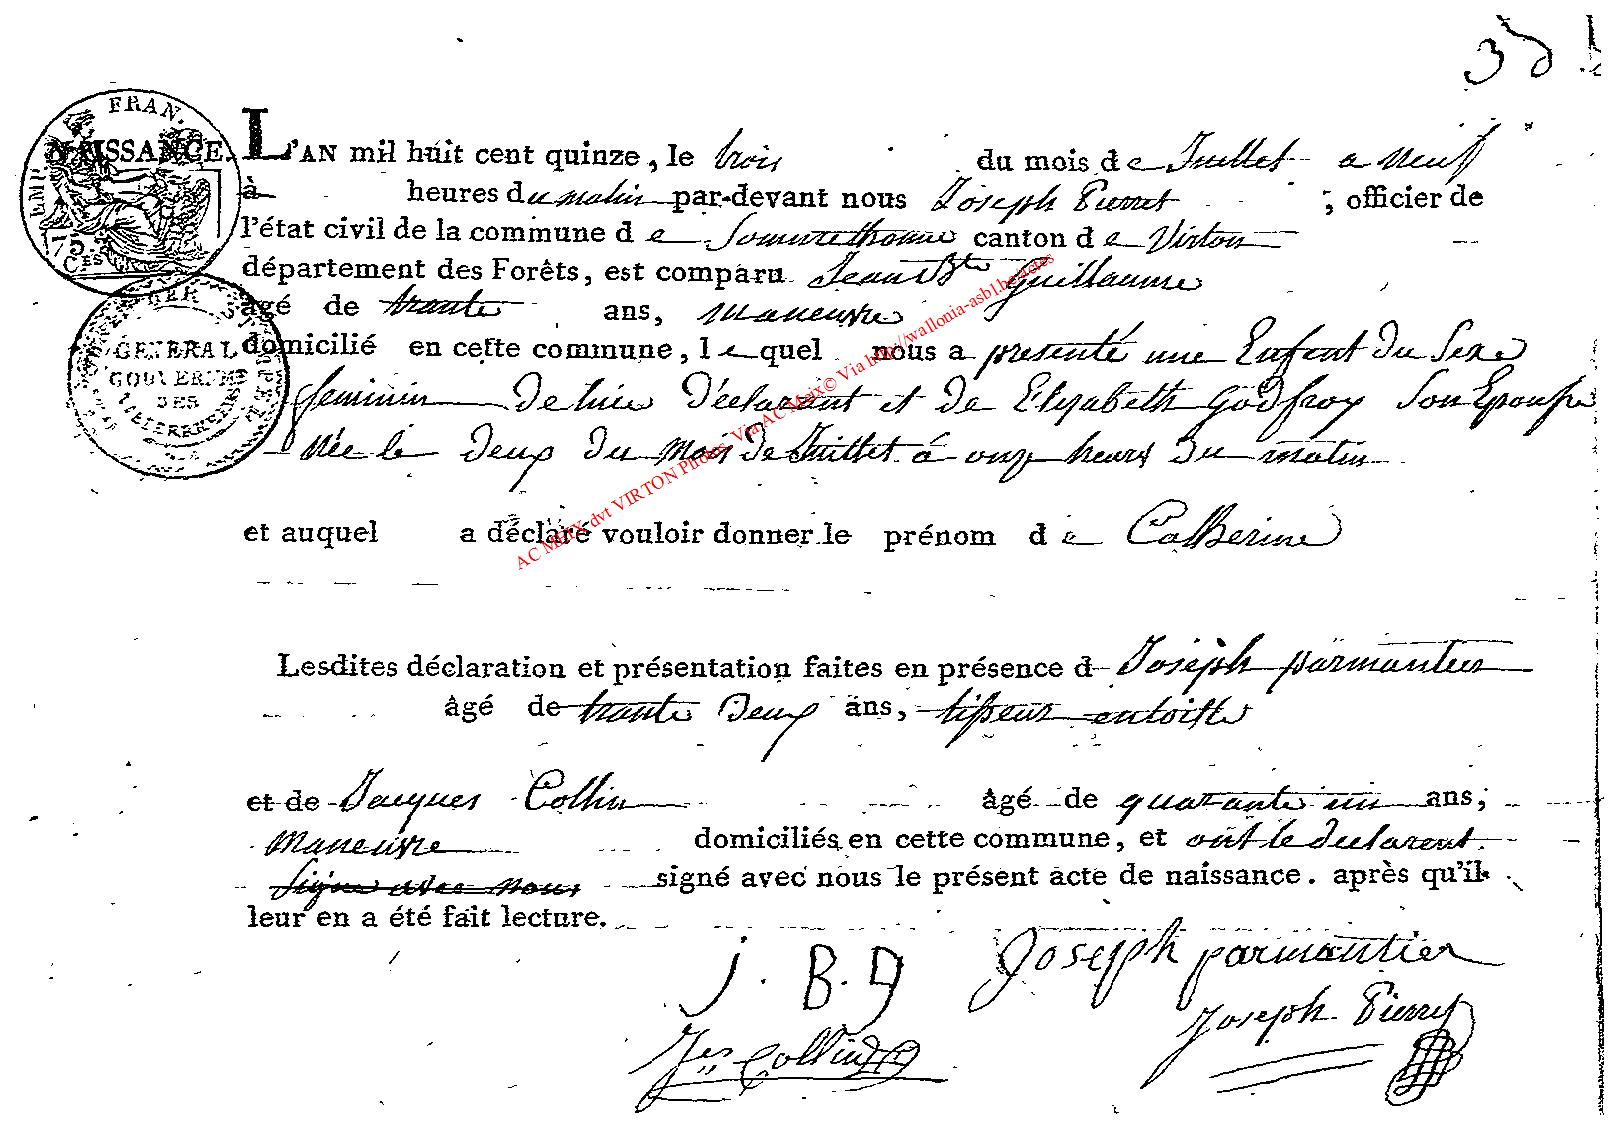 35
EMP. FRAN.
75
CES
GENERAL
GOUVERNMT
DES
NAISSANCE. L'AN mil huit cent quinze, le trois du mois de Juillet a neuf
à heures du matin par-devant nous Joseph Pierret ; officier de
l'état civil de la commune de Sommethonne canton de Virton
département des Forêts, est comparu Jean Bte Guillaume
âgé de trante ans, maneuvre
domicilié en cette commune, lequel nous a presenté une Enfant du Sexe
feminin De luie Déclarent et de Elizabeth Godfroy Son Epouse
Née le deux du mois de Juillet á onze heurs du matin
et auquel a déclaré vouloir donner le prénom de Catherine
Lesdites déclaration et présentation faites en présence d Joseph parmantier
âgé de trante Deux ans, tisseur entoille
et de Jacques Collin âgé de quarante un ans;
Maneuvre domiciliés en cette commune, et ont le declarent
Signe avec nous signé avec nous le présent acte de naissance. après qu'il
leur en a été fait lecture.
J. B. G Joseph parmantier
Jes Collin Joseph Pierret
AC MEIX dvt VIRTON Photos Via AC Meix© Via http//wallonia-asbl.be/actes